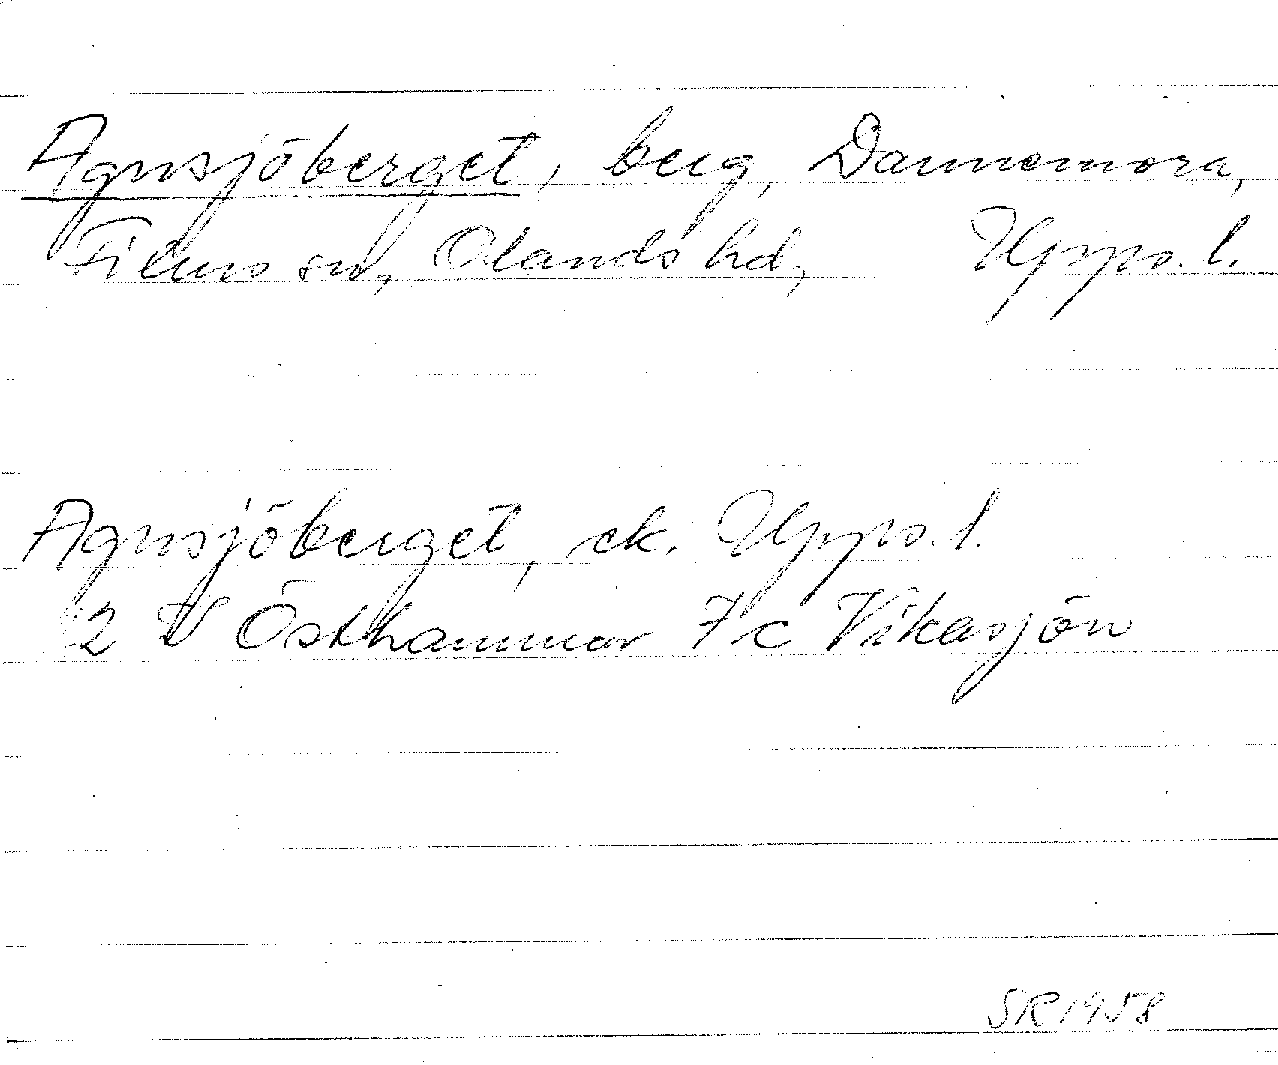 Agnsjöberget, berg, Dannemora,
Films sn, Olands hd, Upps. l.
Agnsjöberget, ek. Upps. l.
12 V Östhammar 7 c Vikasjön
SR 1958